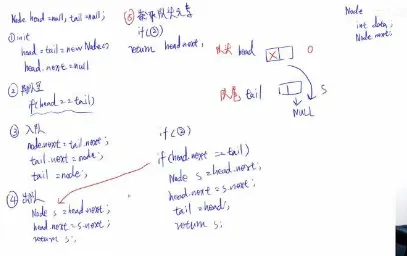 Node head=null, tail=null;
① init
head=tail=new Node()
head.next=null
② 队空
if(head==tail)
③ 入队
node.next=tail.next;
tail.next=node;
tail=node;
④ 出队
Node s=head.next;
head.next=s.next;
return s;
⑤ 获取队头元素
if(②)
return head.next;
if(②)
if(head.next==tail)
Node s=head.next;
head.next=s.next;
tail=head;
return s;
队头 head
0
队尾 tail
S
NULL
Node
int data;
Node next;